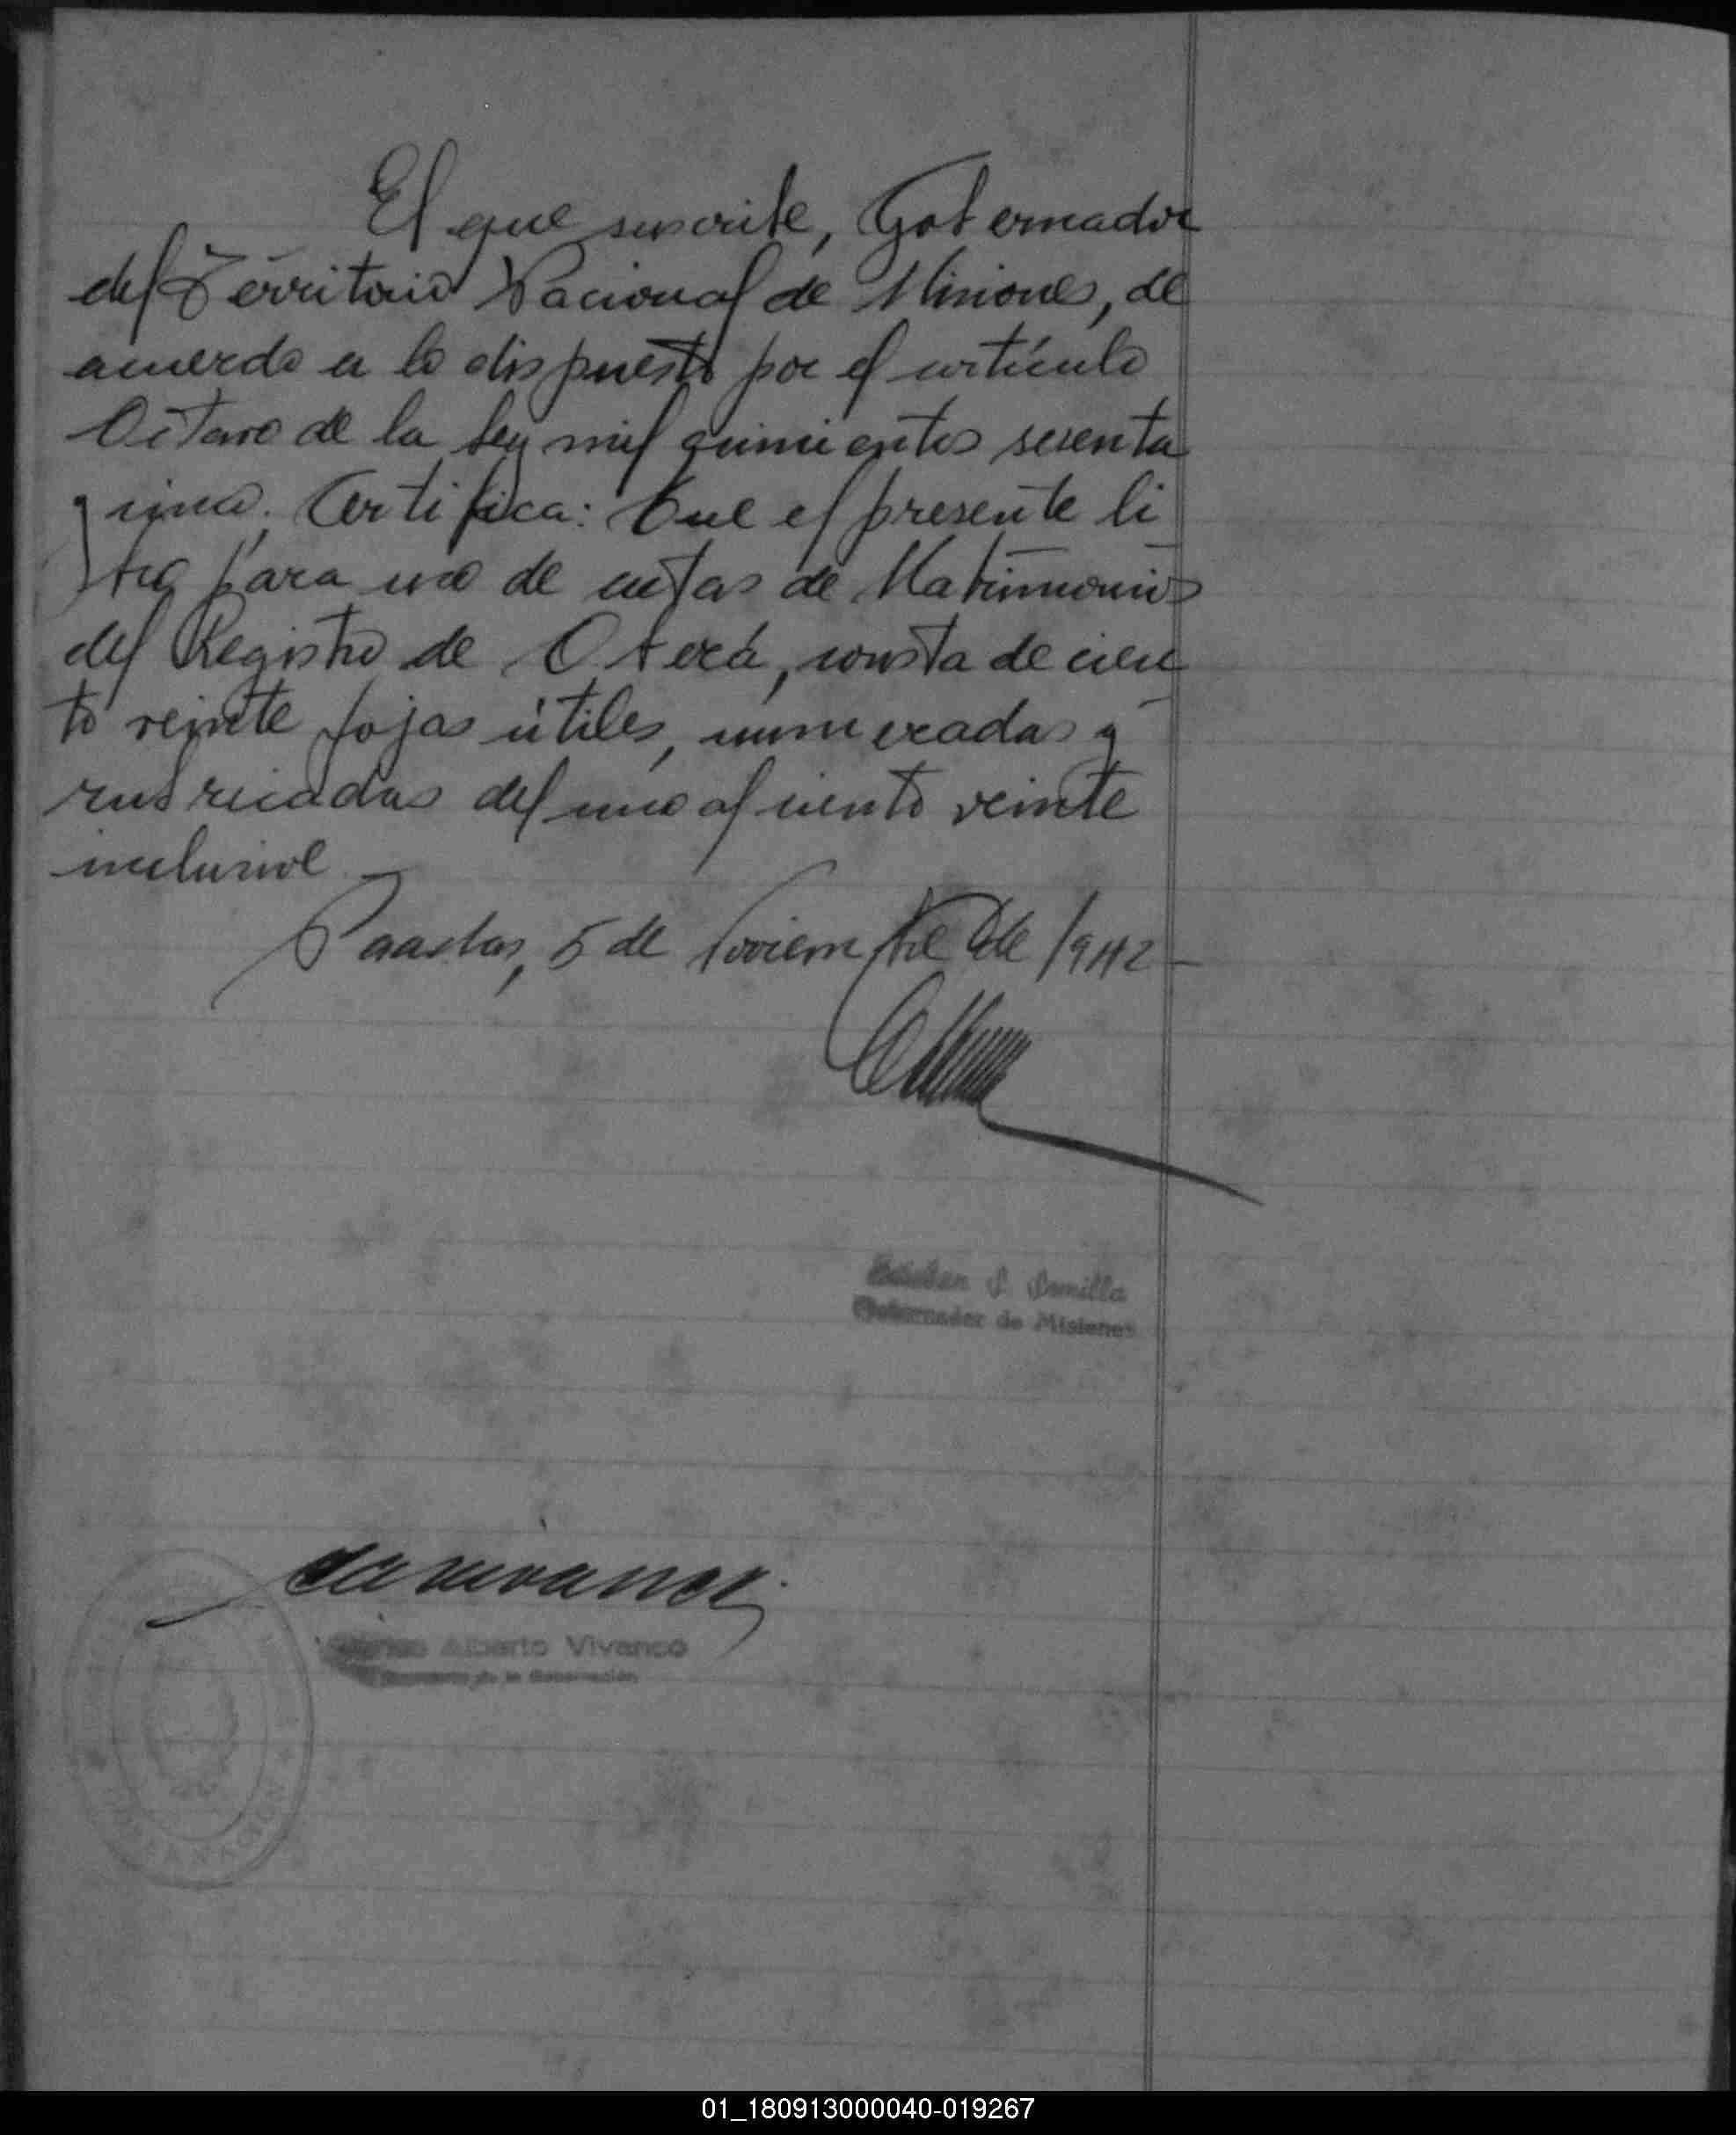 El que suscribe, Gobernador
del Territorio Nacional de Misiones, de
acuerdo a lo dispuesto por el artículo
Octavo de la ley mil quinientos sesenta
y cinco. Certifica: Que el presente li
bro para uso de actas de Matrimonios
del Registro de Oberá, consta de cien
to veinte fojas útiles, numeradas y
rubricadas del uno al ciento veinte
inclusive
Posadas, 5 de Noviembre de 1942
Gobernador de Misiones
Alberto Vivanco
de la Gobernación
GOBERNACION
01_180913000040-019267